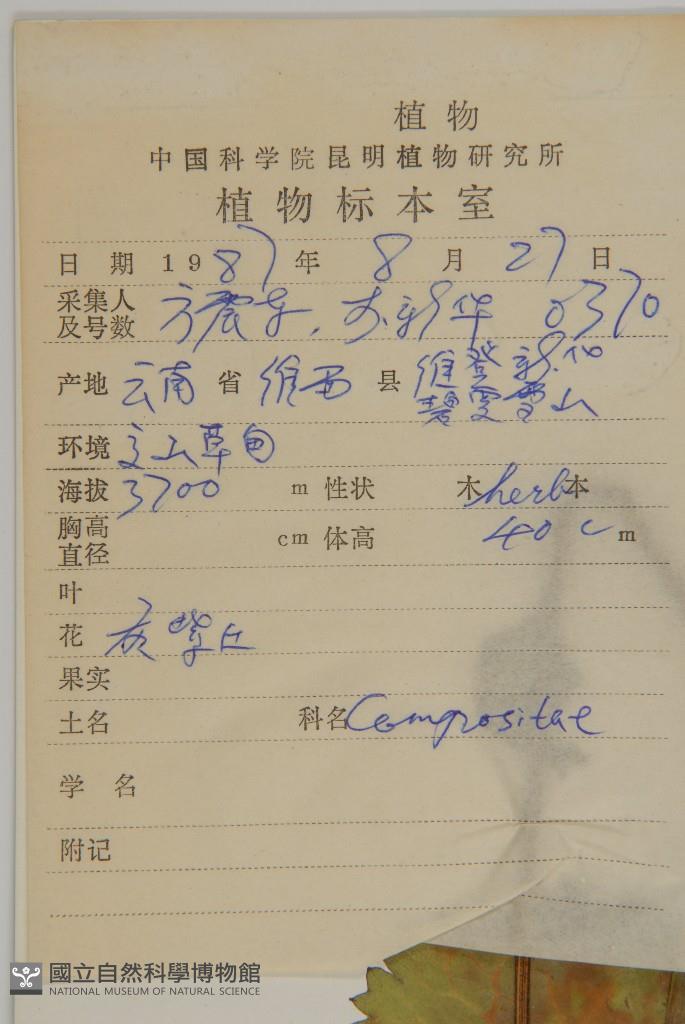 植物
中国科学院昆明植物研究所
植物标本室
日 期 1987 年 8 月 27 日
采集人
及号数 方震东, 新华 0370
产地 云南 省 维西 县 维登新化
碧 雪山
环境 草甸
海拔 3700 m 性状 木 herb 本
胸高
直径 cm 体高 40 cm
叶
花 灰紫
果实
土名 科名 Compositae
学 名
附记
國立自然科學博物館
NATIONAL MUSEUM OF NATURAL SCIENCE